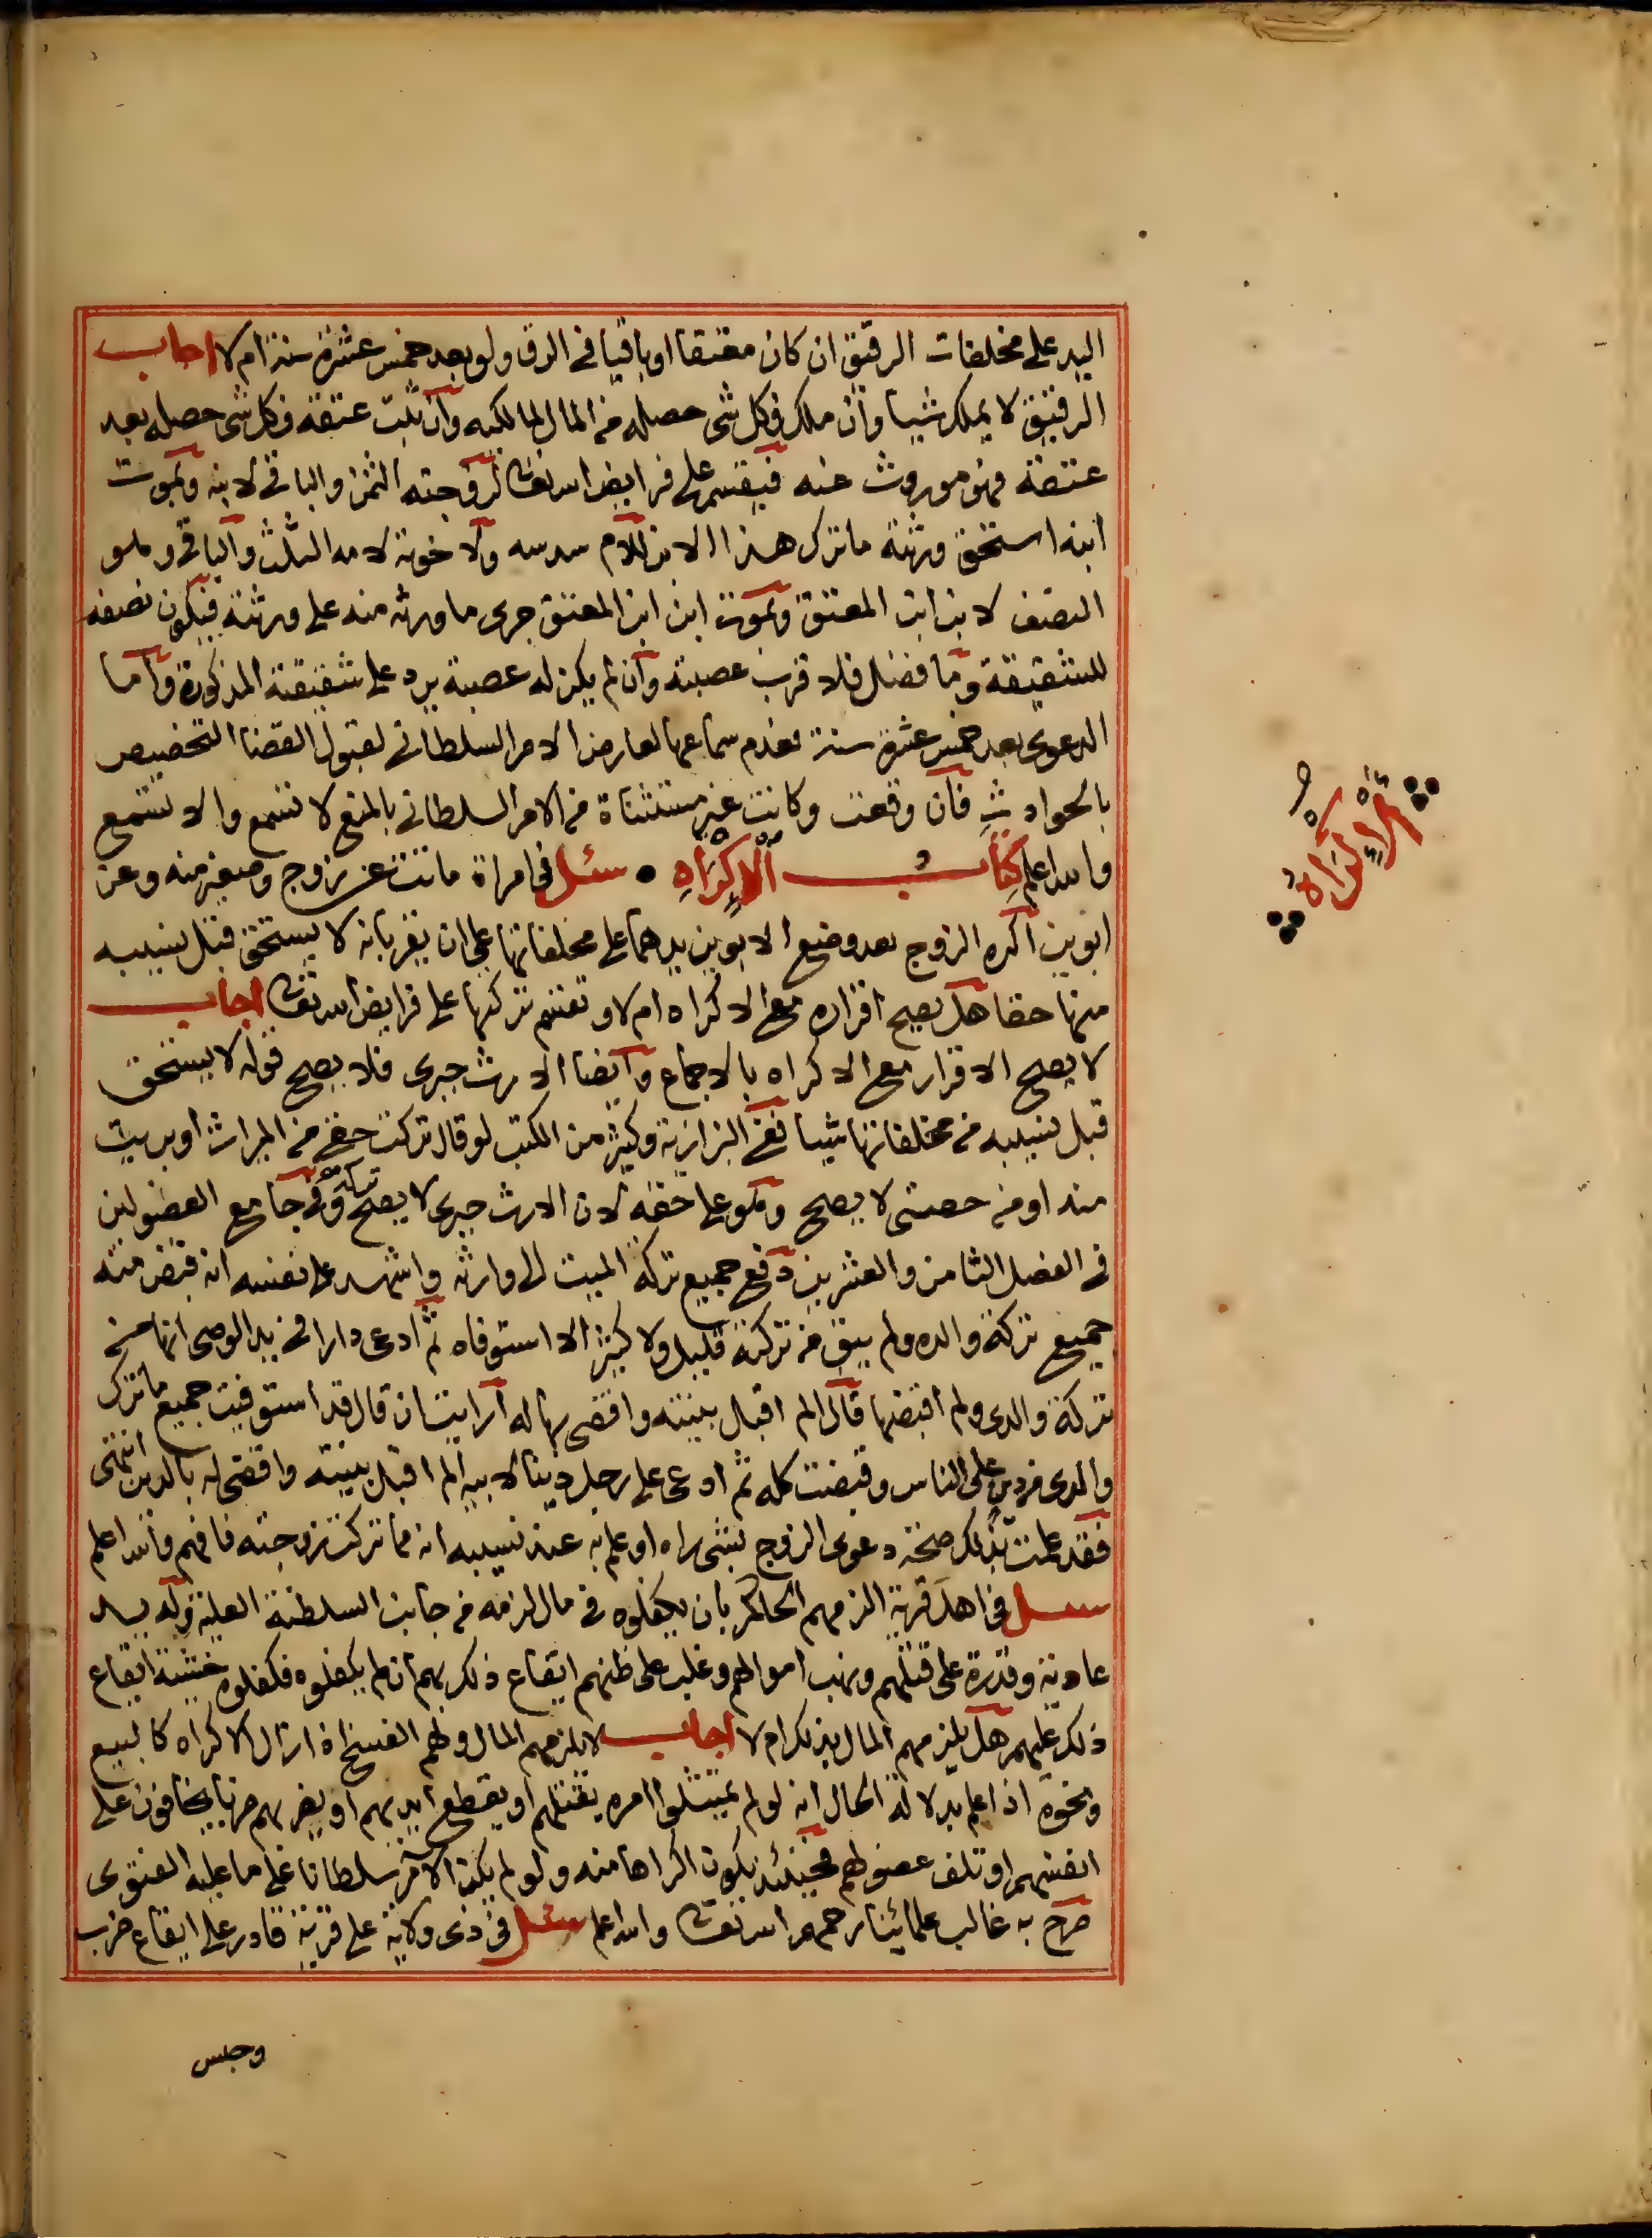 اليد على مخلفات الرقيق ان كان معتقا او باقيا فى الرق ولو بعد خمس عشرة سنة ام لا اجاب
الرقيق لا يملك شيا وان ملك فكل شى حصله من المال لمالكيه وان ثبت عتقه فكل شى حصله بعد
عتقه فهو موروث عنه فيقسم على فرايض الله تعالى لزوجته الثمن والباقى لابنه وبموت
ابنه استحق ورثته ما ترك هذا الابن للام سدسه ولاخوته لامه الثلث والباقى وهو
النصف لابن ابن المعتق وبموت ابن ابن المعتق جرى ما ورثه منه على ورثته فيكون نصفه
للشقيقة وما فضل فلاقرب عصبته وان لم يكن له عصبة يرد على شقيقته المذكورة واما
الدعوى بعد خمس عشرة سنة فعدم سماعها لعارض الامر السلطانى لقبول القضا التخصيص
بالحوادث فان وقعت وكانت غير مستثناة من الامر السلطانى بالمنع لا تسمع والا تسمع
والله اعلم كتاب الاكراه سئل فى امراة ماتت عن زوج وصغير منه وعن
ابوين اكره الزوج بعد وضع الابوين يدهما على مخلفاتها على ان يقر بانه لا يستحق قبل نسيبه
منها حقا هل يصح اقراره مع الاكراه ام لا وتقسم تركتها على فرايض الله تعالى اجاب
لا يصح الاقرار مع الاكراه بالاجماع وايضا الارث جبرى فلا يصح قوله لا يستحق
قبل نسيبه من مخلفاتها شيا ففى البزازية وكثير من الكتب لو قال تركت حقى من الميراث او بريت
منه او من حصتى لا يصح وهو على حقه لان الارث جبرى لا يصح تركه وفى جامع الفصولين
فى الفصل الثامن والعشرين دفع جميع تركة الميت الى وارثه واشهد على نفسه انه قبض منه
جميع تركة والده ولم يبق من تركته قليل ولا كثير الا استوفاه ثم ادعى دارا فى يد الوصى انها من
تركة والدى ولم اقبضها قال الم اقبل بينته واقضى بها له ارايت ان قال قد استوفيت جميع ما ترك
والدى من دين على الناس وقبضت كله ثم ادعى على رجل دينا لابيه الم اقبل بينته واقضى له بالدين انتهى
فقد علمت بذلك صحة دعوى الزوج بشى راه او علم به عند نسيبه انه مما تركت زوجته فافهم والله اعلم
سئل فى اهل قرية الزمهم الحاكم بان يكفلوه فى مال لزمه من جانب السلطنة العلية وله يد
عادية وقدرة على قتلهم ونهب اموالهم وغلب على ظنهم ايقاع ذلك بهم ان لم يكفلوه فكفلوه خشية ايقاع
ذلك عليهم هل يلزمهم المال بذلك ام لا اجاب لا يلزمهم المال ولهم الفسخ اذا زال الاكراه كالبيع
ونحوه اذا علم بدلالة الحال انه لو لم يمتثلوا امره يقتلهم او يقطع ايديهم او يضربهم ضربا يخافون على
انفسهم او تلف عضو لهم فحينئذ يكون اكراها منه ولو لم يكن الامر سلطانا على ما عليه الفتوى
صرح به غالب علمائنا رحمهم الله تعالى والله اعلم سئل فى ذى ولاية على قرية قادر على ايقاع ضرب
وحبس
الاكراه